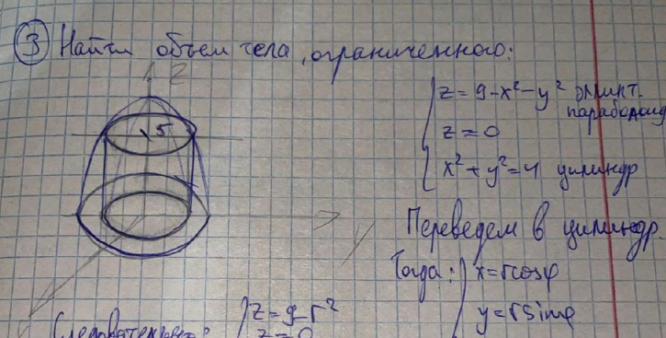 ③ Найти объем тела, ограниченного:
z = 9 - x² - y² эллипт. параболоид
z = 0
x² + y² = 4 цилиндр
z
5
y
Переведем в цилиндр.
Тогда: x = r cosφ
y = r sinφ
Следовательно: z = 9 - r²
z = 0